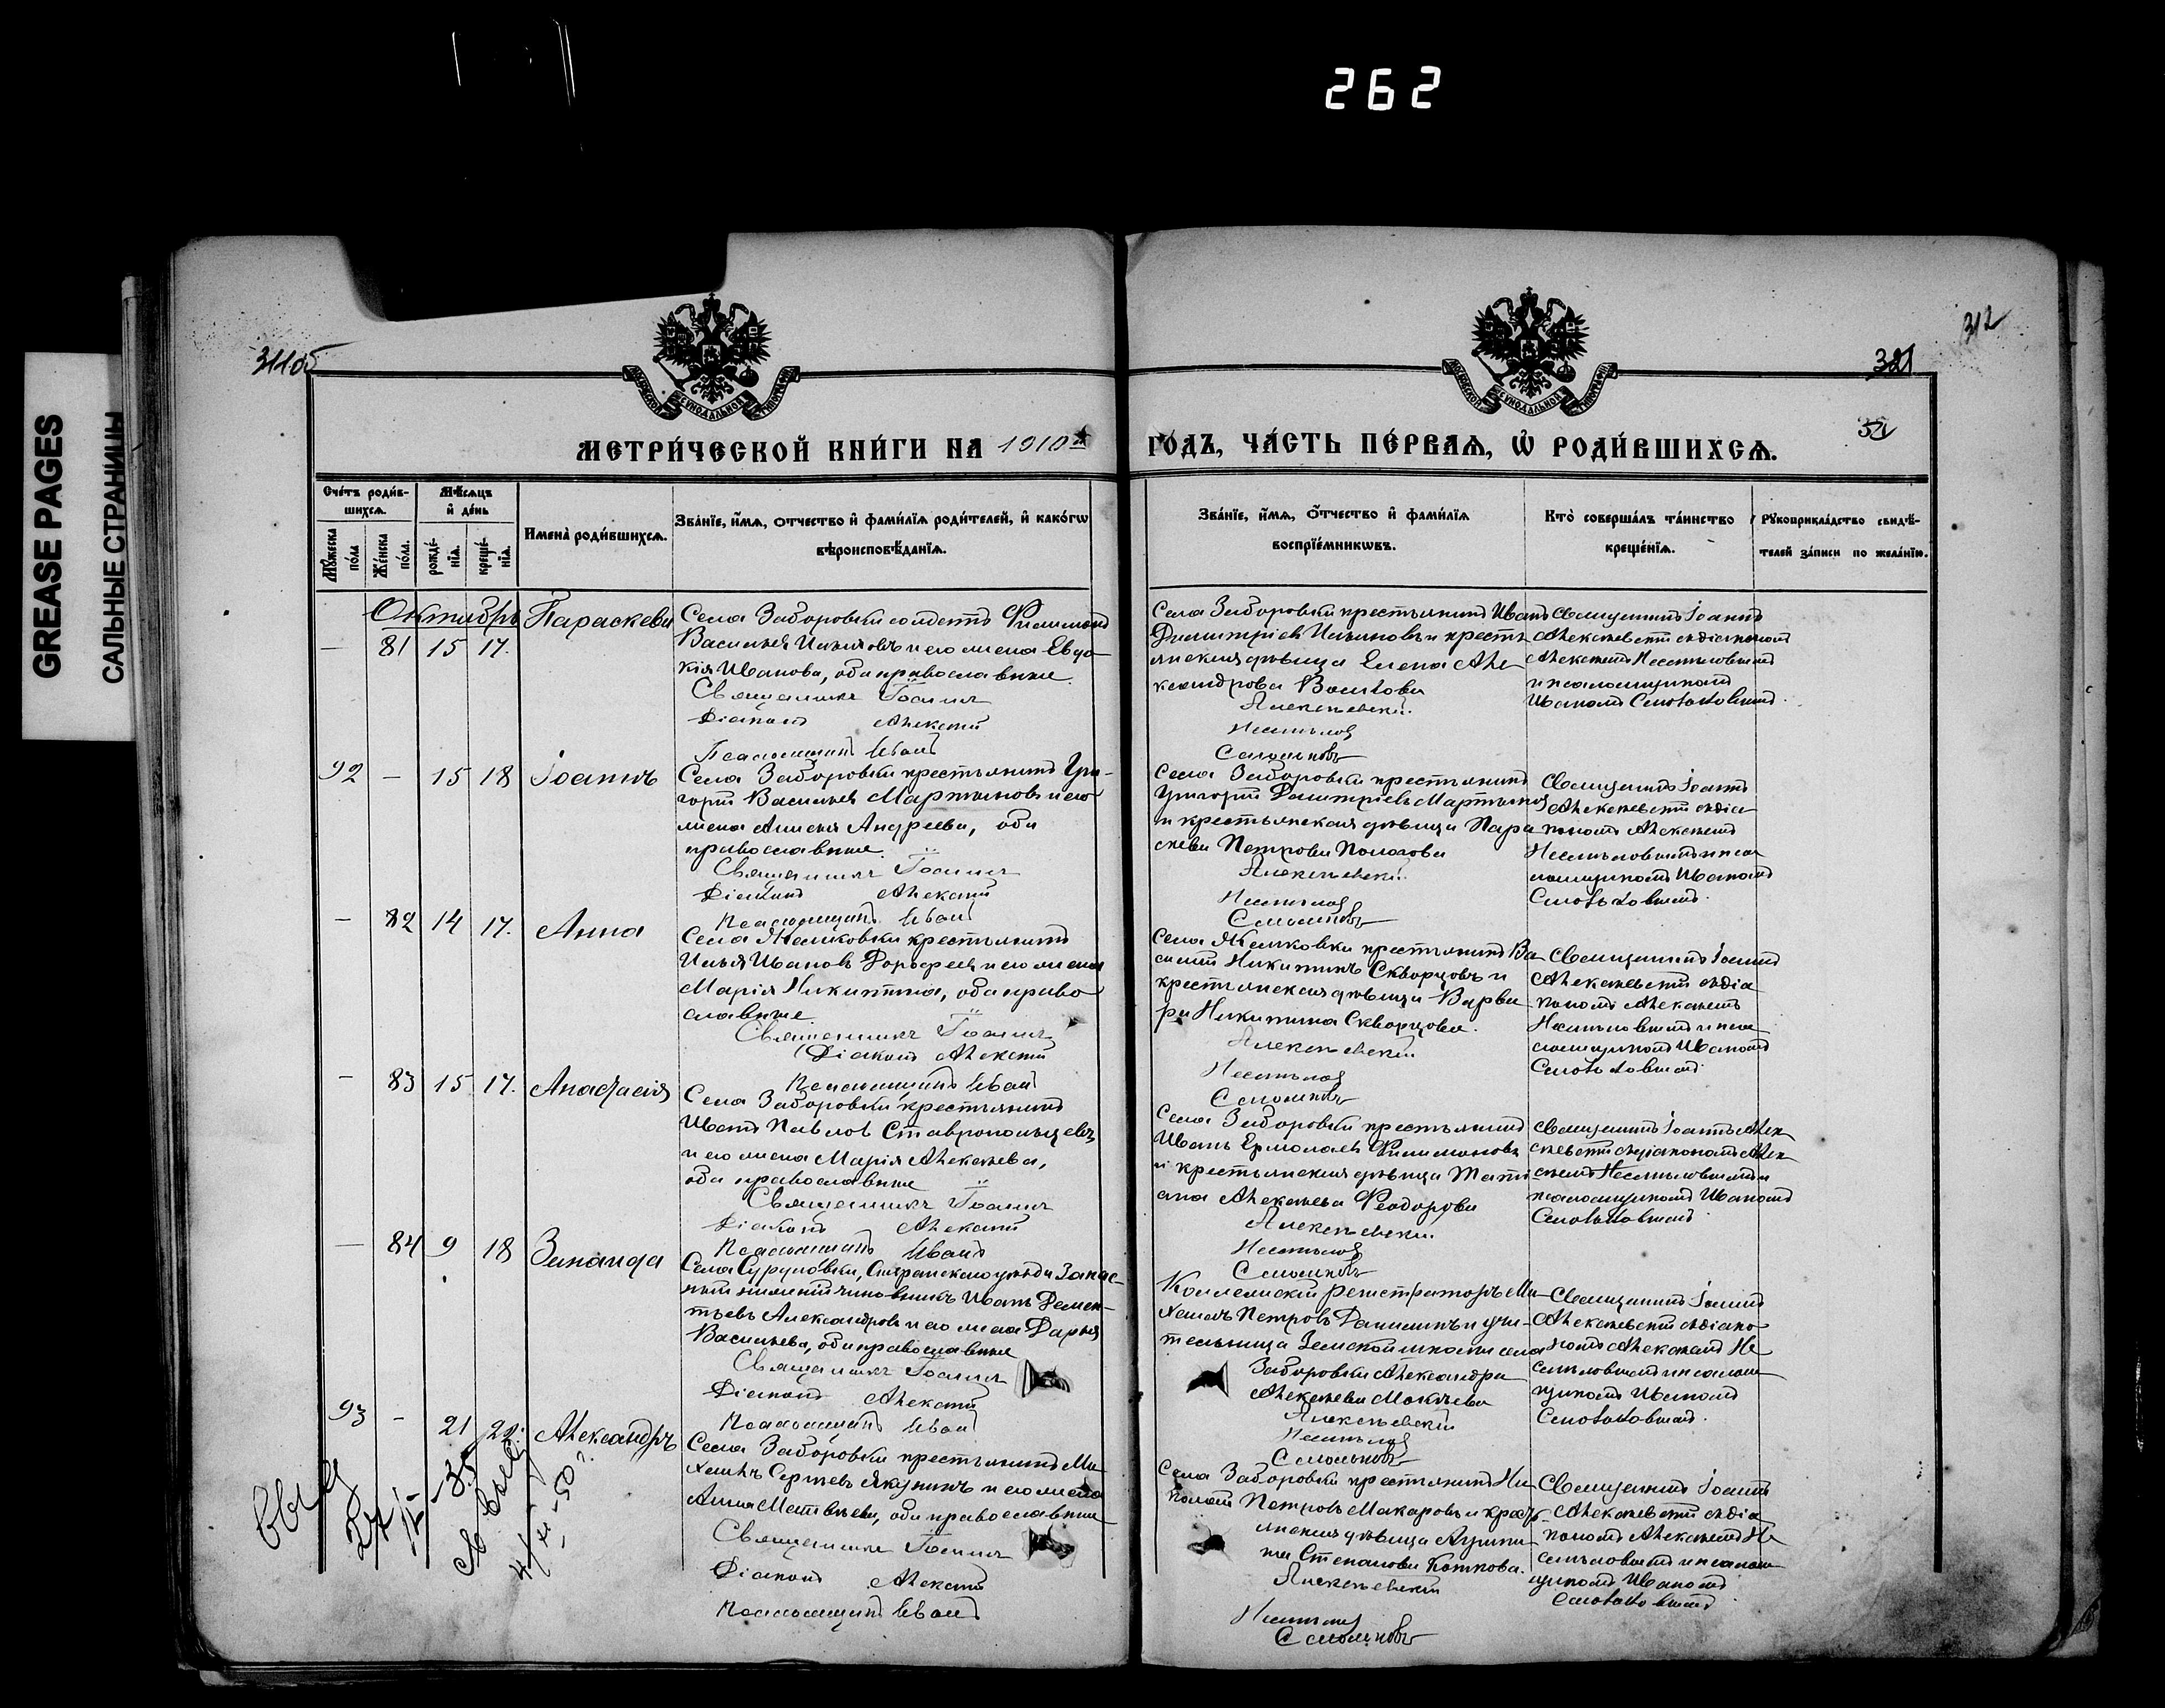 262
GREASE PAGES
САЛЬНЫЕ СТРАНИЦЫ
311об
312
321
МЕТРИ́ЧЕСКОЙ КНИ́ГИ НА 1910й
ГО́ДЪ, ЧА́СТЬ ПЕ́РВАѦ, Ѿ РОДИ́ВШИХСѦ.
Сче́тъ роди́в-
шихсѧ.
Мѣ́сѧцъ
и҆ де́нь
Мꙋ́жеска по́ла
Же́нска по́ла.
рожде́-
нїѧ.
креще́-
нїѧ.
И҆мена̀ роди́вшихсѧ.
Зва́нїе, и҆́мѧ, ѻ҆́тчество и҆ фами́лїѧ роди́телей, и҆ како́гѡ
вѣроисповѣ́данїѧ.
Зва́нїе, и҆́мѧ, ѻ҆́тчество и҆ фами́лїѧ
воспрїе́мникѡвъ.
Кто̀ соверша́лъ та́инство
креще́нїѧ.
Рꙋкоприкла́дство свидѣ́-
телей за́писи по жела́нїю.
Октябрь
— 81 15 17. Параскева
Села Заборовки солдатъ Филимонъ
Васильевъ Ильиновъ и его жена Евдо-
кія Иванова, оба православные.
Священникъ Іоаннъ
Діаконъ Алексѣй
Псаломщикъ Иванъ
Села Заборовки крестьянинъ Иванъ
Димитріевъ Ильиновъ и кресть-
янская дѣвица Елена Але-
ксандрова
Алексѣевскій
Несмѣловъ
Смольковъ
Священникъ Іоаннъ
Алексѣевскій съ діакономъ
Алексѣемъ Несмѣловымъ
и псаломщикомъ
Иваномъ Смольковымъ.
92 — 15 18 Іоаннъ
Села Заборовки крестьянинъ Гри-
горій Васильевъ Мартыновъ и его
жена Андреева, оба
православные.
Священникъ Іоаннъ
Діаконъ Алексѣй
Псаломщикъ Иванъ
Села Заборовки крестьянинъ
Григорій Димитріевъ Мартыновъ
и крестьянская дѣвица Пара-
скева Петрова
Алексѣевскій
Несмѣловъ
Смольковъ
Священникъ Іоаннъ
Алексѣевскій съ діа-
кономъ Алексѣемъ
Несмѣловымъ и пса-
ломщикомъ Иваномъ
Смольковымъ.
— 82 14 17. Анна
Села крестьянинъ
Илья Ивановъ Дорофеевъ и его жена
Марія Никитина, оба право-
славные.
Священникъ Іоаннъ
Діаконъ Алексѣй
Псаломщикъ Иванъ
Села крестьянинъ Ва-
силій Никитинъ Скворцовъ и
крестьянская дѣвица Варва-
ра Никитина Скворцова.
Алексѣевскій
Несмѣловъ
Смольковъ
Священникъ Іоаннъ
Алексѣевскій съ діа-
кономъ Алексѣемъ
Несмѣловымъ и пса-
ломщикомъ Иваномъ
Смольковымъ.
— 83 15 17. Анастасія
Села Заборовки крестьянинъ
Иванъ Павловъ Ставропольцевъ
и его жена Марія Алексѣева,
оба православные
Священникъ Іоаннъ
Діаконъ Алексѣй
Псаломщикъ Иванъ
Села Заборовки крестьянинъ
Иванъ Ермолаевъ Филимоновъ
и крестьянская дѣвица Тати-
ана Алексѣева Феодорова
Алексѣевскій
Несмѣловъ
Смольковъ
Священникъ Іоаннъ Алек-
сѣевскій съ діакономъ Алек-
сѣемъ Несмѣловымъ и
псаломщикомъ Иваномъ
Смольковымъ
— 84 9 18 Зинаида
Села Суруловки, Сызранскаго уѣзда Запас-
ный чиновникъ Иванъ Демен-
тьевъ Александровъ и его жена Дарья
Васильева, оба православные
Священникъ Іоаннъ
Діаконъ Алексѣй
Псаломщикъ Иванъ
Коллежскій регистраторъ Ми-
хаилъ Петровъ Данилинъ и учи-
тельница Земской школы села
Заборовки Александра
Алексѣева
Алексѣевскій
Несмѣловъ
Смольковъ
Священникъ Іоаннъ
Алексѣевскій съ діако-
номъ Алексѣемъ Не-
смѣловымъ и псалом-
щикомъ Иваномъ
Смольковымъ.
93 — 21 22. Александръ
Села Заборовки крестьянинъ Ми-
хаилъ Сергѣевъ Якунинъ и его жена
Анна Матвѣева, оба православные
Священникъ Іоаннъ
Діаконъ Алексѣй
Псаломщикъ Иванъ
Села Заборовки крестьянинъ Ни-
колай Петровъ Макаровъ и кресть-
янская дѣвица Агрипи-
на Степанова Коткова.
Алексѣевскій
Несмѣловъ
Смольковъ
Священникъ Іоаннъ
Алексѣевскій съ діа-
кономъ Алексѣемъ Не-
смѣловымъ и псалом-
щикомъ Иваномъ
Смольковымъ